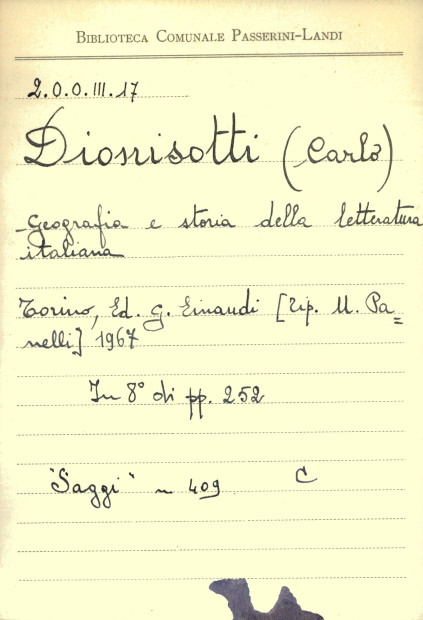 BIBLIOTECA COMUNALE PASSERINI-LANDI
2.0.0.III.17
Dionisotti (Carlo)
Geografia e storia della letteratura
italiana
Torino, Ed. G. Einaudi [Tip. U. Pa=
nelli] 1967
In 8° di pp. 252
"Saggi" n 409 C